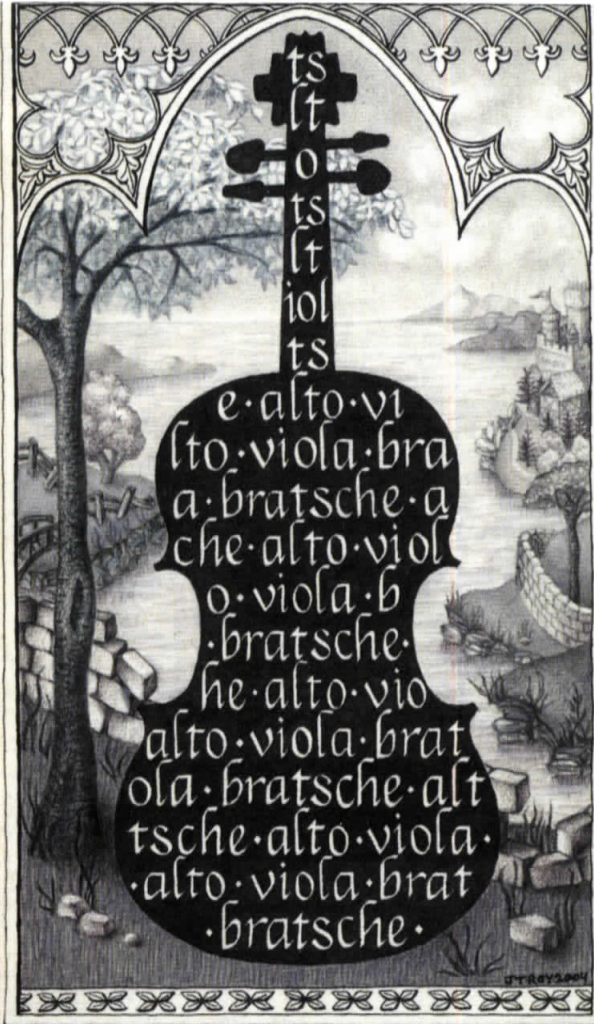 ts
lt
o
ts
lt
iol
ts
e·alto·vi
lto·viola·bra
a·bratsche·a
che·alto·viol
o·viola·b
·bratsche·
he·alto·vio
alto·viola·brat
ola·bratsche·alt
tsche·alto·viola·
·alto·viola·brat
·bratsche·
JTROY2004